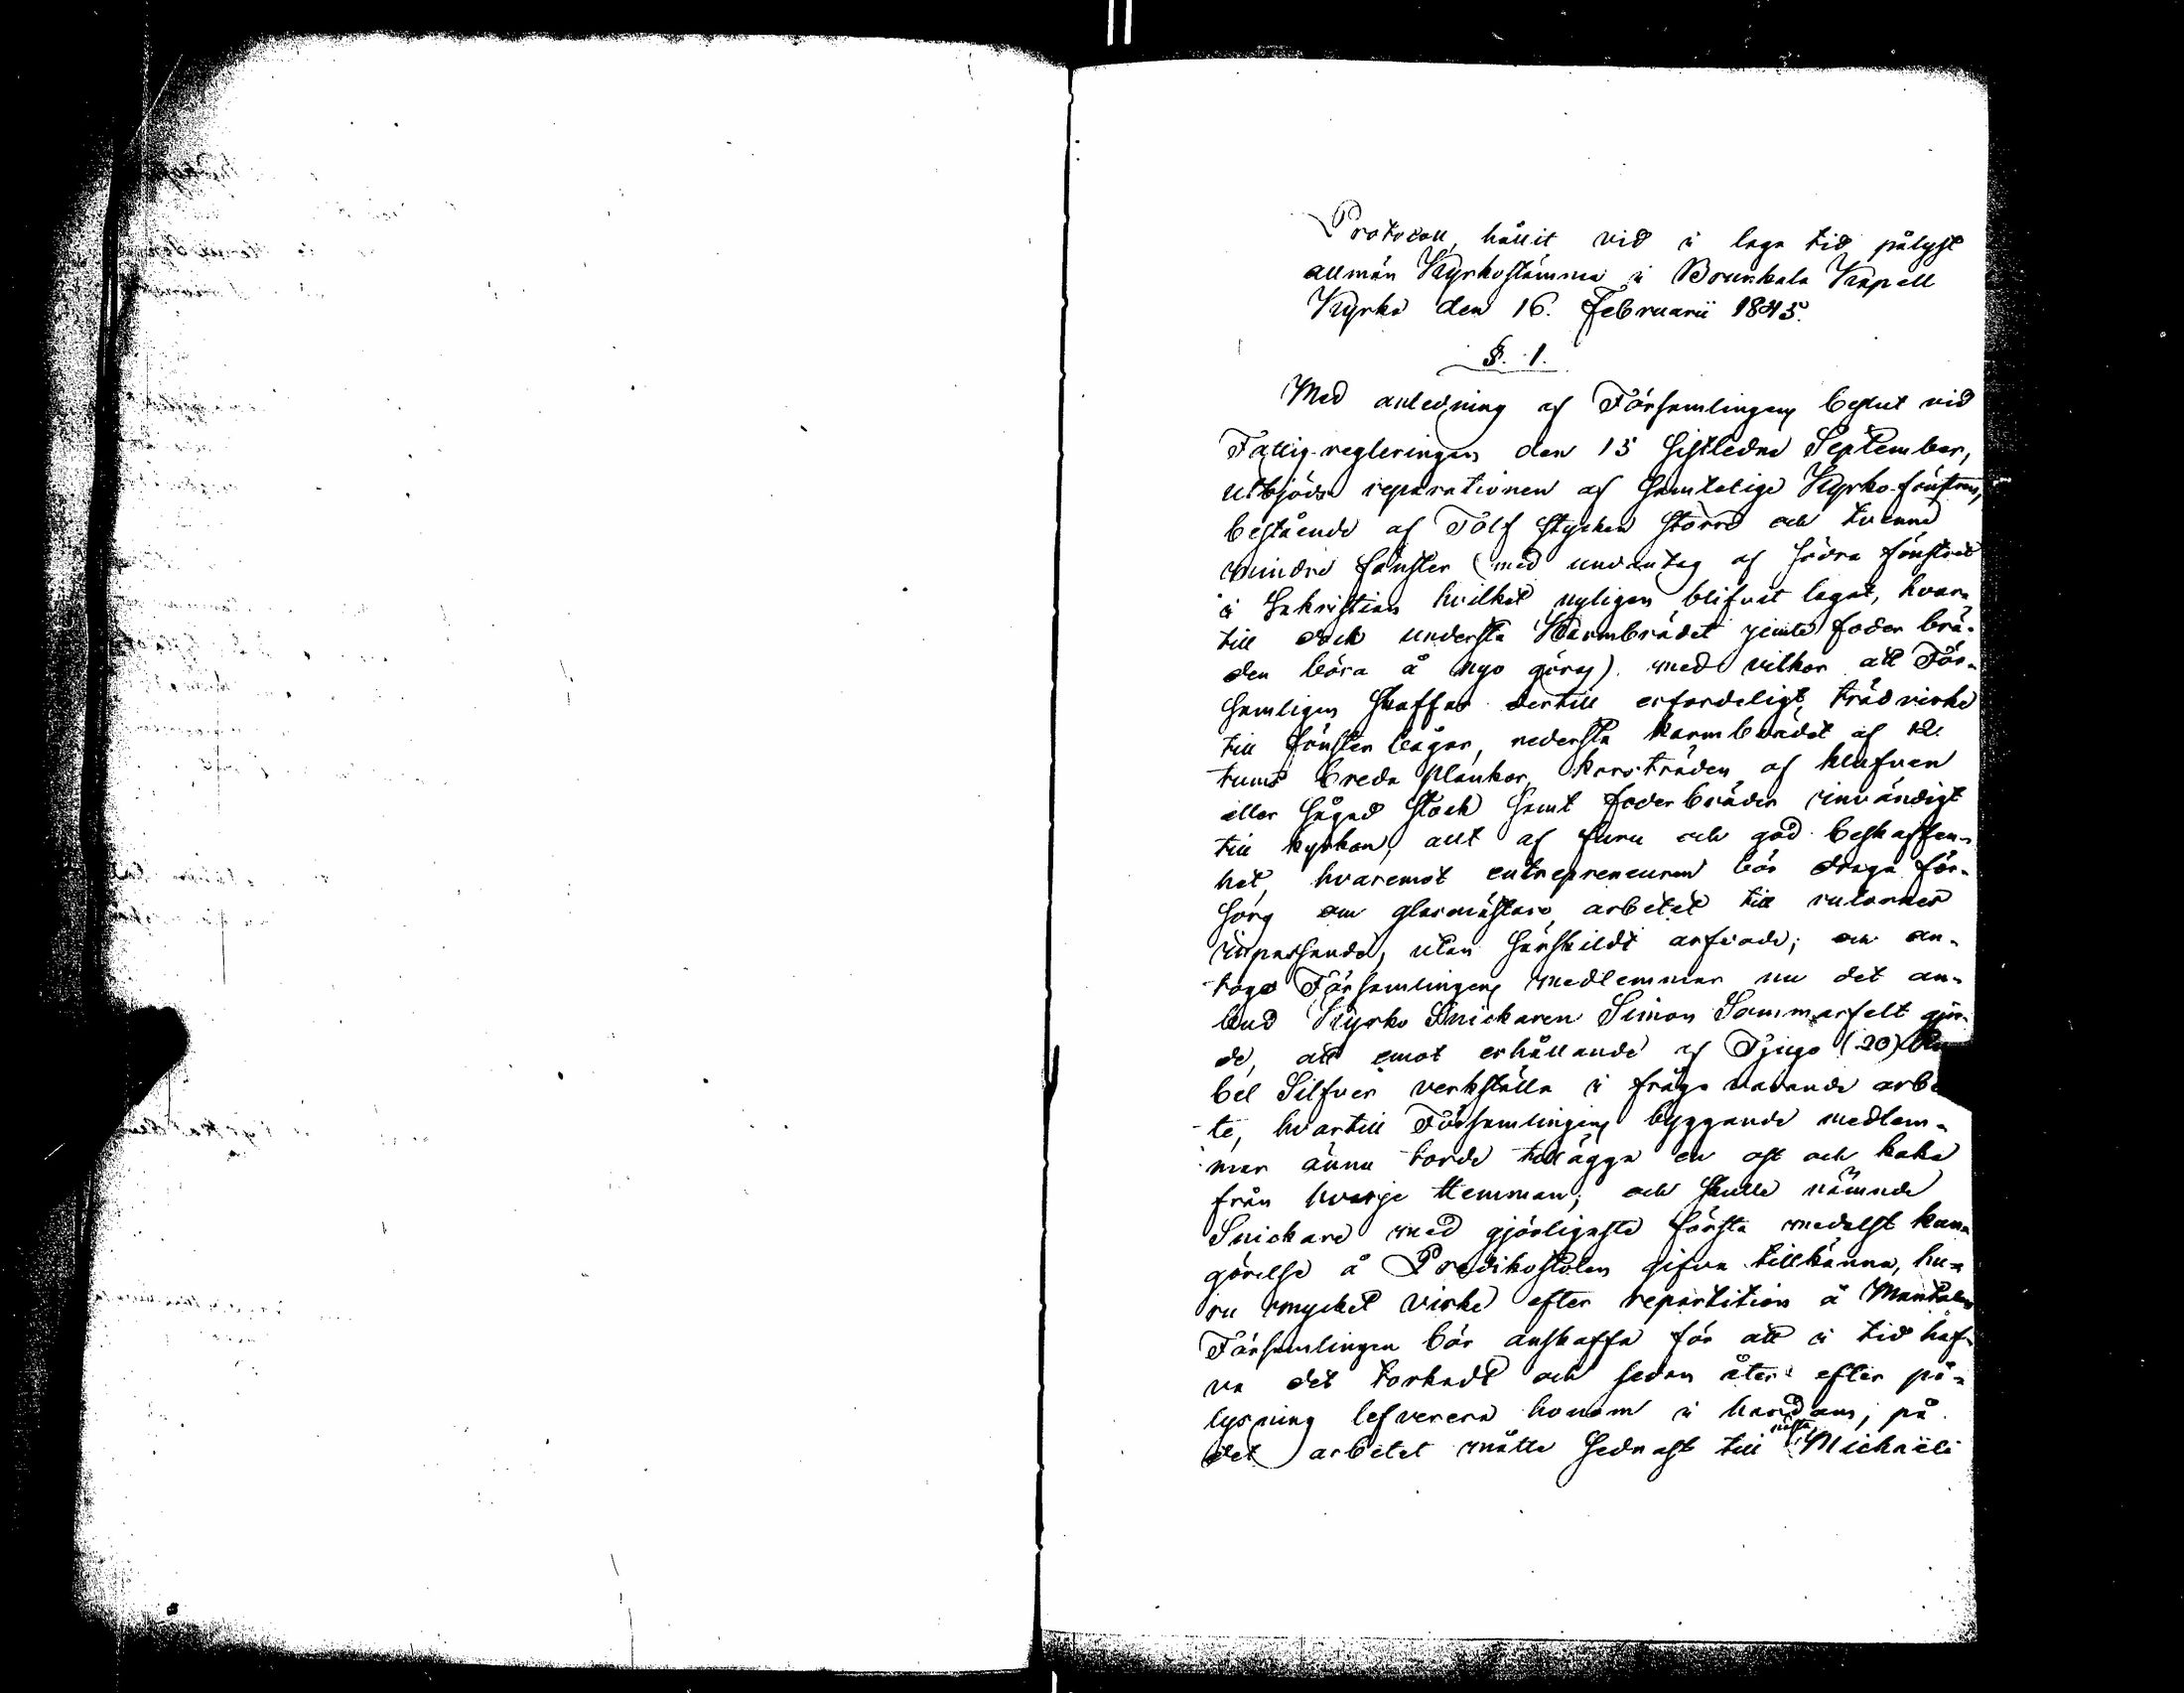 Protocoll, hållit vid i laga tid pålyst
allmän Kyrkostämma i Brunkala Kapell
Kyrka den 16. Februarii 1845.
§. 1.
Med anledning af Församlingens beslut vid
Fattig-regleringen den 15 sistledne September,
utbjöds reparationen af samtelige Kyrko-fönstren,
bestående af Tolf stycken större och tvenne
mindre fönster (med undantag af södra fönstret
i Sakristian hvilket nyligen blifvit lagat, hvar=
till dock understa Karmbrädet jemte foder brä=
den böra å nyo göras) med vilkor att För=
samligen skaffar dertill erforderligt trädvirke
till fönster bågar, nedersta karmbrädet af 12.
tums breda plankor, karsträden af klufven
eller sågad stock samt foderbräder invändigt
till kyrkan, allt af furu och god beskaffen=
het, hvaremot entrepreneuren bör draga för=
sorg om glasmästare arbetet till rutornes
inpassande, utan särskildt arfvode; och an=
togo Församlingens medlemmar nu det an=
bud Kyrko Snickaren Simon Sammarfelt gjor=
de, att emot erhållande af Tjugo (20) Ru
bel Silfver verkställa i fråga varande arbe
te, hvartill Församlingens byggande medlem=
mar ännu torde tillägga en ost och kaka
från hvarje Hemman; och skulle nämnde
Snickare med gjörligaste första medelst kun=
görelse å Predikostolen gifva tillkänna, hu=
ru mycket virke efter repartition å Mantalen
Församlingen bör anskaffa för att i tid haf=
va det torkadt och sedan åter efter på=
lysning lefverera honom i handom, på
det arbetet måtte sednast till nästa Michaëli